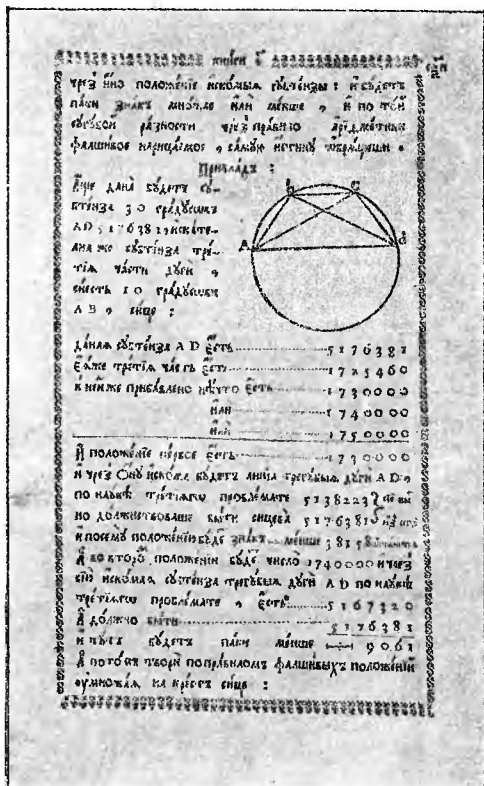 книги
чрез̾ ѻ҆но положе́нїе и҆ско́мыѧ сꙋбте́нзы: и҆ бꙋ́детъ
па́ки зна́къ мно́жае и҆лѝ ме́нше, и҆ по то́й
ра́зности чрез̾ пра́вило а҆рїѳме́тики
фалши́вое нарица́емое, са́мꙋю и҆́стинꙋ
Прикла́дъ:
А҆́ще дана̀ бꙋ́детъ сꙋ-
бте́нза 30 гра́дꙋсѡвъ
A D 5176381
сꙋбте́нза тре́-
тїѧ ча́сти дꙋгѝ,
сїе́сть 10 гра́дꙋсѡвъ
A B, си́це:
A b c d
да́наѧ сꙋбте́нза A D є҆́сть 5176381
є҆ѧ́же тре́тїѧ ча́сть є҆́сть 1725460
к не́йже приба́влено нѣ́что є҆́сть 1730000
и҆лѝ 1740000
и҆лѝ 1750000
А҆ положе́нїе пе́рвое є҆́сть 1730000
и҆ чрез̾ ѻ҆нꙋ̀ и҆ско́маѧ бꙋ́детъ ли́нїа дꙋгѝ A D,
по наꙋ́кѣ тре́тїѧгѡ пробле́мате 5138223
но до́лжнствоваше бы́ти сицева̀ 5176381
и҆ посемꙋ̀ положе́нїи бꙋ́де зна́къ ме́нше 38158
А҆ во второ́мъ положе́нїи бꙋ́де число̀ 1740000 и҆ чрез̾
сїѐ и҆ско́маѧ сꙋбте́нза дꙋгѝ A D по наꙋ́кѣ
тре́тїѧгѡ пробле́мате, є҆́сть 5167320
А҆ до́лжно бы́ти 5176381
бꙋ́детъ па́ки ме́нше 9061
А҆ пото́мъ творѝ по пра́виломъ фалши́выхъ положе́нїй
ᲂу҆множа́ѧ на кре́стъ си́це: